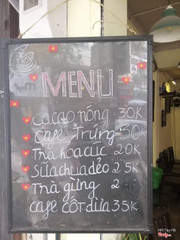 MENU
Cacao nóng 30K
Cafe Trứng 50K
Trà hoa cúc 20K
Sữa chua dẻo 25K
Trà gừng 2
cafe cốt dừa 35K